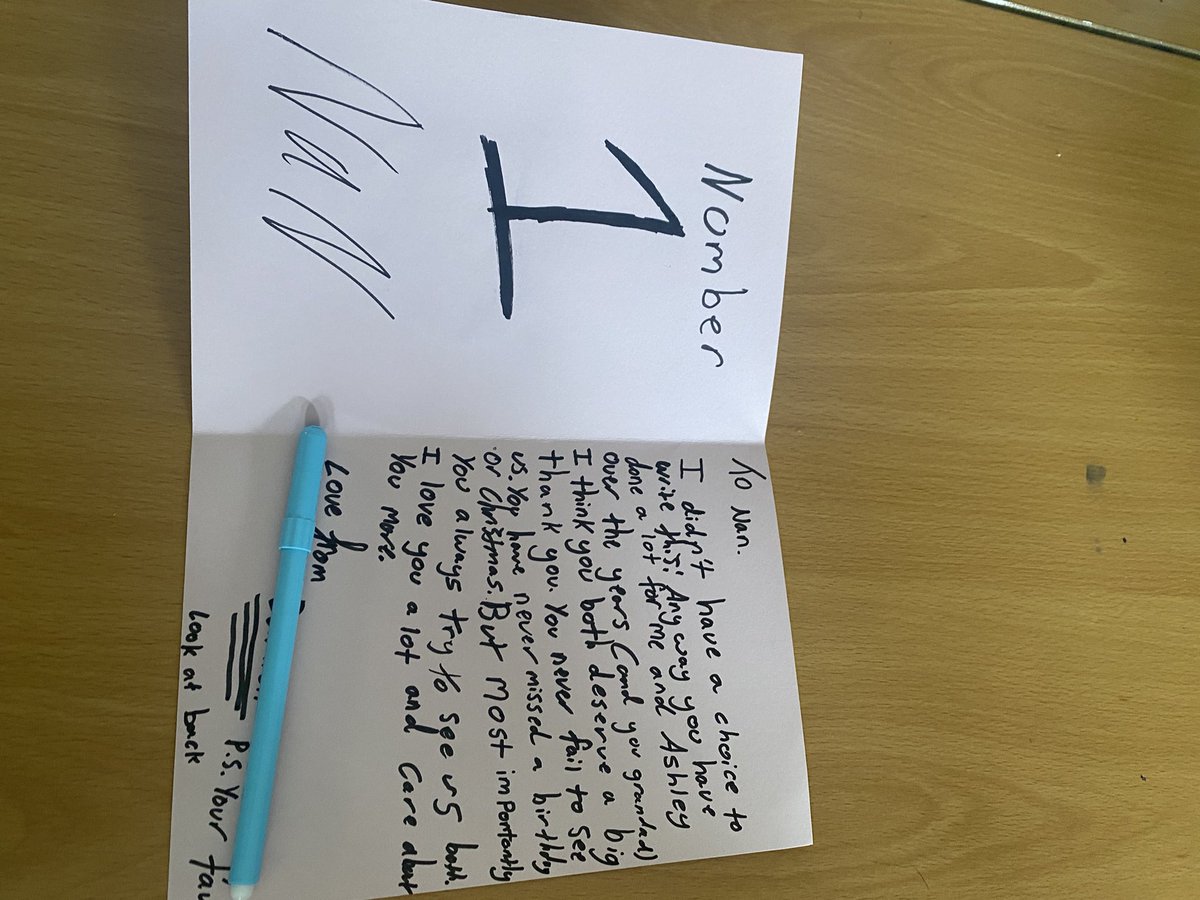 Number
1
Nan
To Nan.
I didn't have a choice to
write this! Anyway you have
done a lot for me and Ashley
over the years (and you grandad)
I think you both deserve a big
thank you. You never fail to see
us. You have never missed a birthday
or Christmas. But most importantly
You always try to see us both.
I love you a lot and care about
You more.
Love from
P.S. Your
Look at back